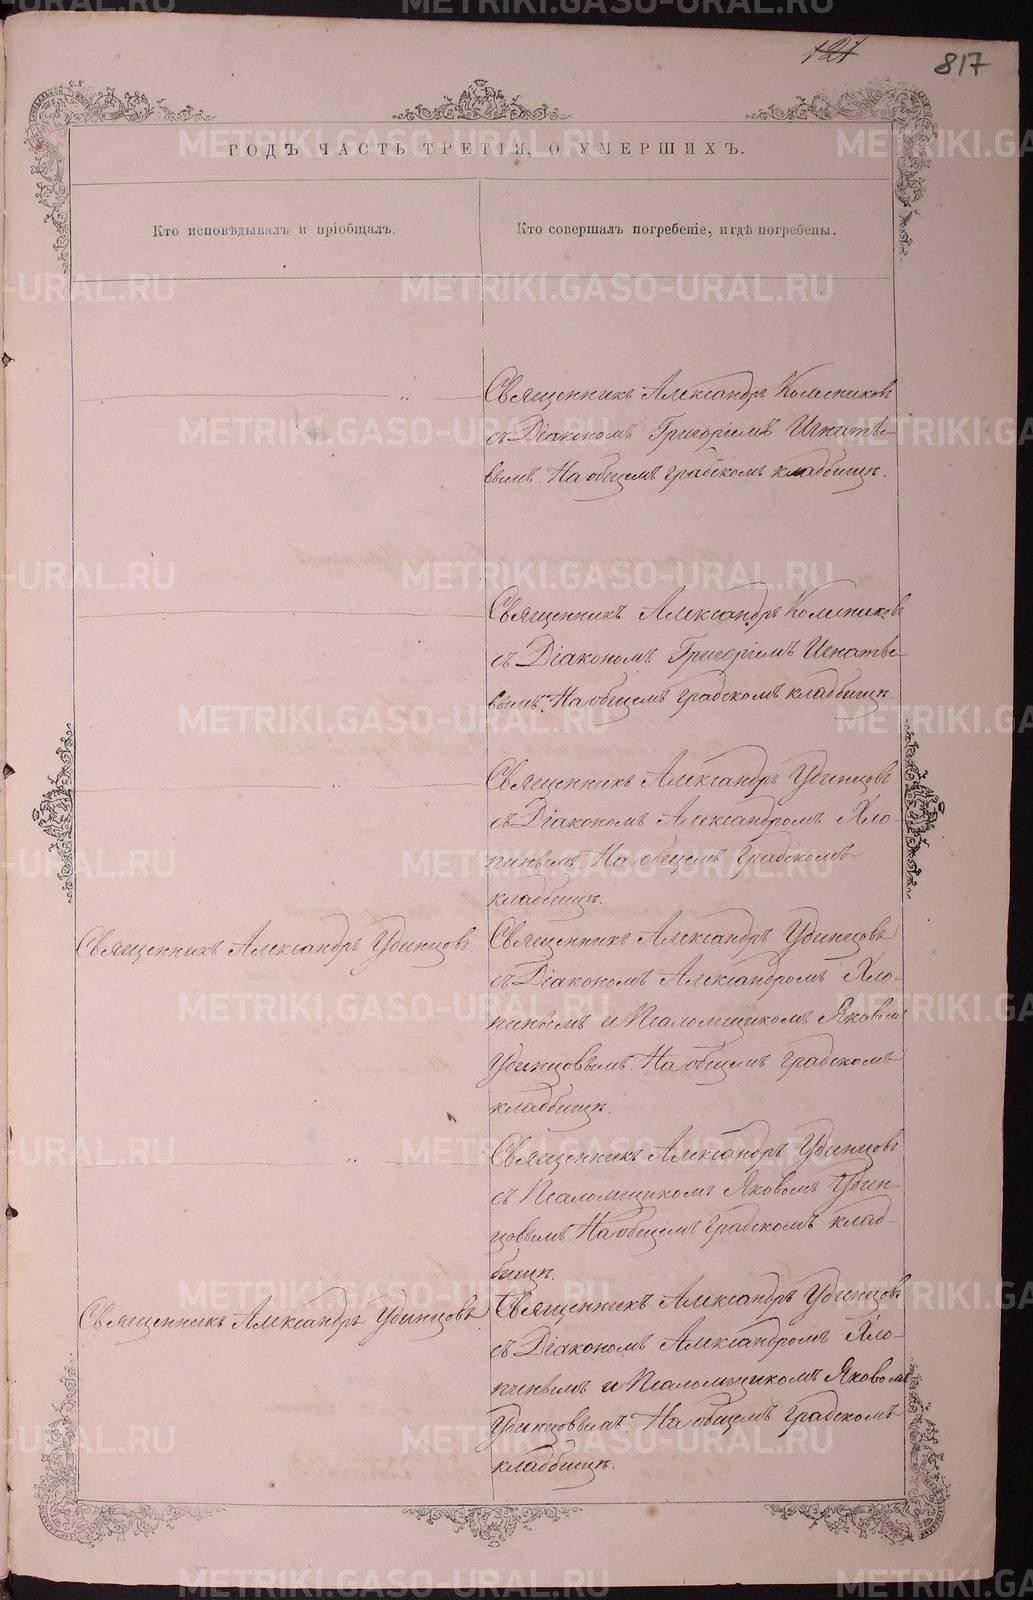 121
817
ГОДЪ ЧАСТЬ ТРЕТІЯ, О УМЕРШИХЪ.
Кто исповѣдывалъ и пріобщалъ.
Кто совершалъ погребеніе, и гдѣ погребены.
Священникъ Александръ Колесниковъ
съ Діакономъ Григоріемъ Игнатье-
вымъ. На общемъ градскомъ кладбищѣ.
Священникъ Александръ Колесниковъ
съ Діакономъ Григоріемъ Игнатье-
вымъ. На общемъ градскомъ кладбищѣ.
Священникъ Александръ Удинцовъ
съ Діакономъ Александромъ Хло-
пинымъ. На общемъ градскомъ
кладбищѣ.
Священникъ Александръ Удинцовъ.
Священникъ Александръ Удинцовъ
съ Діакономъ Александромъ Хло-
пинымъ и Псаломщикомъ Яковомъ
Удинцовымъ. На общемъ градскомъ
кладбищѣ.
Священникъ Александръ Удинцовъ
съ Псаломщикомъ Яковомъ Удин-
цовымъ. На общемъ градскомъ клад-
бищѣ.
Священникъ Александръ Удинцовъ.
Священникъ Александръ Удинцовъ
съ Діакономъ Александромъ Хло-
пинымъ и Псаломщикомъ Яковомъ
Удинцовымъ. На общемъ градскомъ
кладбищѣ.
METRIKI.GASO-URAL.RU